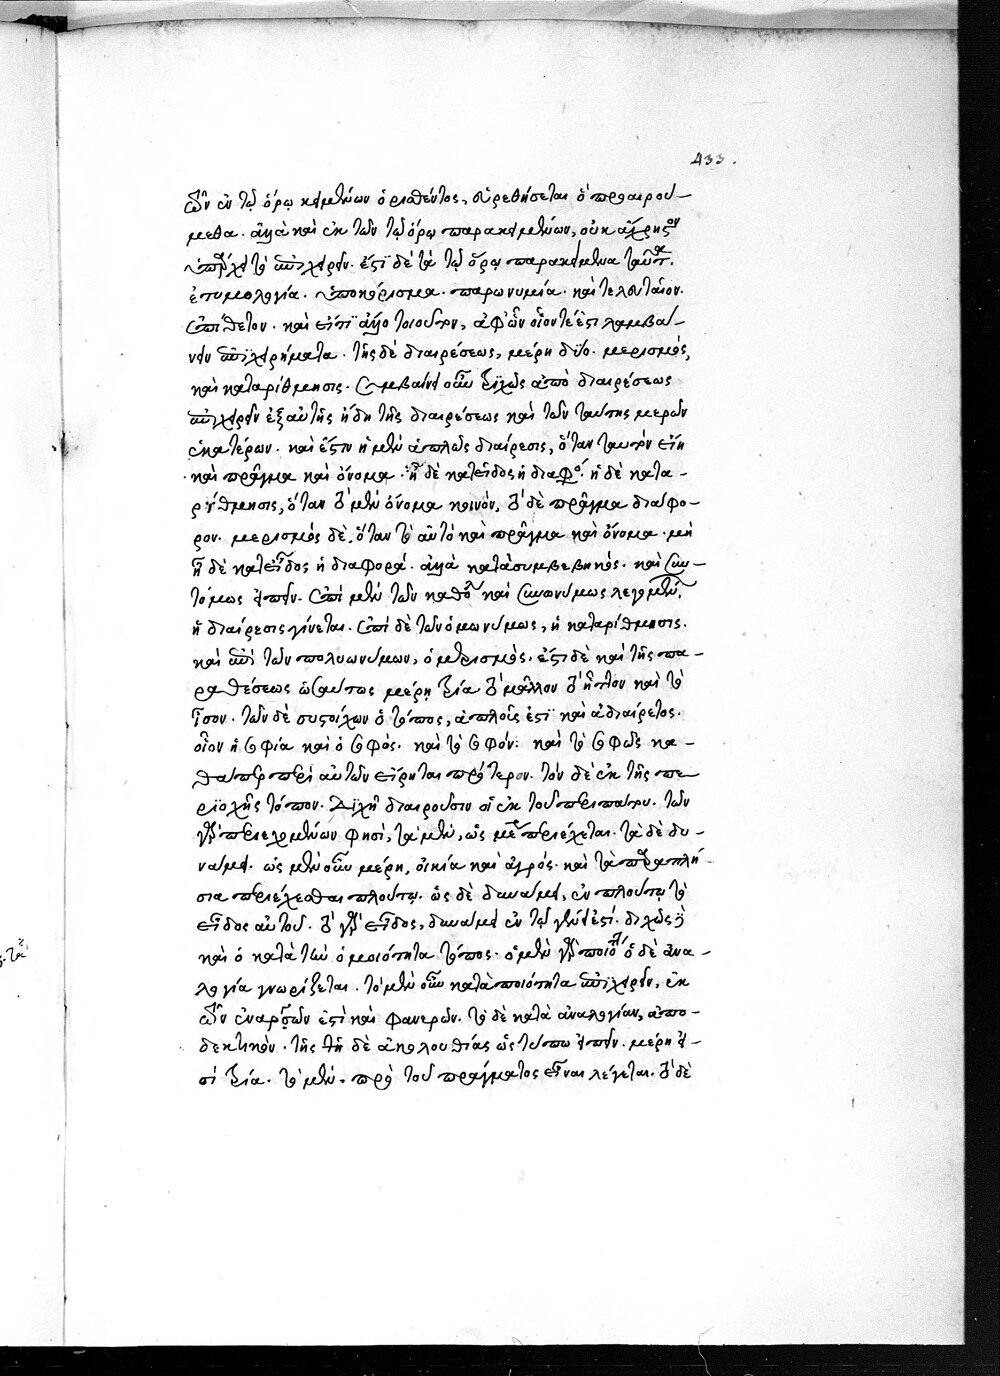 433.
ὧν ἐν τῷ ὅρῳ κειμένων ὁρισθέντος, εὑρεθήσεται ὃ προαιρού-
μεθα. ἀλλὰ καὶ ἐκ τῶν τῷ ὅρῳ παρακειμένων, οὐκ ἄχρηστον
ὑπάρχει τὸ ἐπιχειρεῖν. ἔστι δὲ τὰ τῷ ὅρῳ παρακείμενα ταῦτα.
ἐτυμολογία. ὑποκόρισμα. παρωνυμία. καὶ τελευταῖον.
ἐπίθετον. καὶ εἴ τι ἄλλο τοιοῦτον, ἀφ' ὧν οἷόν τέ ἐστι λαμβά-
νειν ἐπιχειρήματα. τῆς δὲ διαιρέσεως, μέρη δύο. μερισμός,
καὶ καταρίθμησις. συμβαίνει οὖν τριχῶς ἀπὸ διαιρέσεως
ἐπιχειρεῖν ἐξ αὐτῆς ἤδη τῆς διαιρέσεως καὶ τῶν ταύτης μερῶν
ἑκατέρων. καὶ ἔστιν ἡ μὲν ἁπλῶς διαίρεσις, ὅταν ταυτὸν εἴη
καὶ πρᾶγμα καὶ ὄνομα. ᾖ δὲ κατ' εἶδος ἡ διαφορά. ἡ δὲ κατα-
ρίθμησις, ὅταν τὸ μὲν ὄνομα κοινόν, τὸ δὲ πρᾶγμα διάφο-
ρον. μερισμὸς δὲ, ὅταν τὸ αὐτὸ καὶ πρᾶγμα καὶ ὄνομα. μὴ
ᾖ δὲ κατ' εἶδος ἡ διαφορά. ἀλλὰ κατὰ συμβεβηκός. καὶ συν-
τόμως εἰπεῖν. ἐπὶ μὲν τῶν καθόλου καὶ συνωνύμως λεγομένων,
ἡ διαίρεσις γίνεται. ἐπὶ δὲ τῶν ὁμωνύμως, ἡ καταρίθμησις.
καὶ ἐπὶ τῶν πολυωνύμων, ὁ μερισμός. ἔστι δὲ καὶ τῆς πα-
ραθέσεως ὡσαύτως μέρη τρία τὸ μᾶλλον τὸ ἧττον καὶ τὸ
ἴσον. τῶν δὲ συστοίχων ὁ τόπος, ἁπλοῦς ἐστὶ καὶ ἀδιαίρετος.
οἷον ἡ σοφία καὶ ὁ σοφός. καὶ τὸ σοφόν. καὶ τὸ σοφῶς κα-
θάπερ περὶ αὐτῶν εἴρηται πρότερον. τὸν δὲ ἐκ τῆς πε-
ριοχῆς τόπον. διχῇ διαιροῦσιν οἱ ἐκ τοῦ περιπάτου. τῶν
γὰρ περιεχομένων φησὶ, τὰ μὲν, ὡς μέρη περιέχεται. τὰ δὲ δυ-
νάμει. ὡς μὲν οὖν μέρη, οἰκία καὶ ἀγρός. καὶ τὰ παραπλή-
σια περιέχεσθαι πλούτῳ. ὡς δὲ δυνάμει, ἐν πλούτῳ τὸ
εἶδος αὐτοῦ. τὸ γὰρ εἶδος, δυνάμει ἐν τῷ γένει ἐστί. διχῶς δὲ
καὶ ὁ κατὰ τὴν ὁμοιότητα τόπος. ὁ μὲν γὰρ ποιότητι ὁ δὲ ἀνα-
λογίᾳ γνωρίζεται. τὸ μὲν οὖν κατὰ ποιότητα ἐπιχειρεῖν, ἐκ
τῶν ἐναργῶν ἐστὶ καὶ φανερῶν. τὸ δὲ κατὰ ἀναλογίαν, ἀπο-
δεικτικόν. τῆς δὲ ἀκολουθίας ὡς τύπῳ εἰπεῖν. μέρη εἰ-
σὶ τρία. τὸ μὲν. πρὸ τοῦ πράγματος εἶναι λέγεται. τὸ δὲ